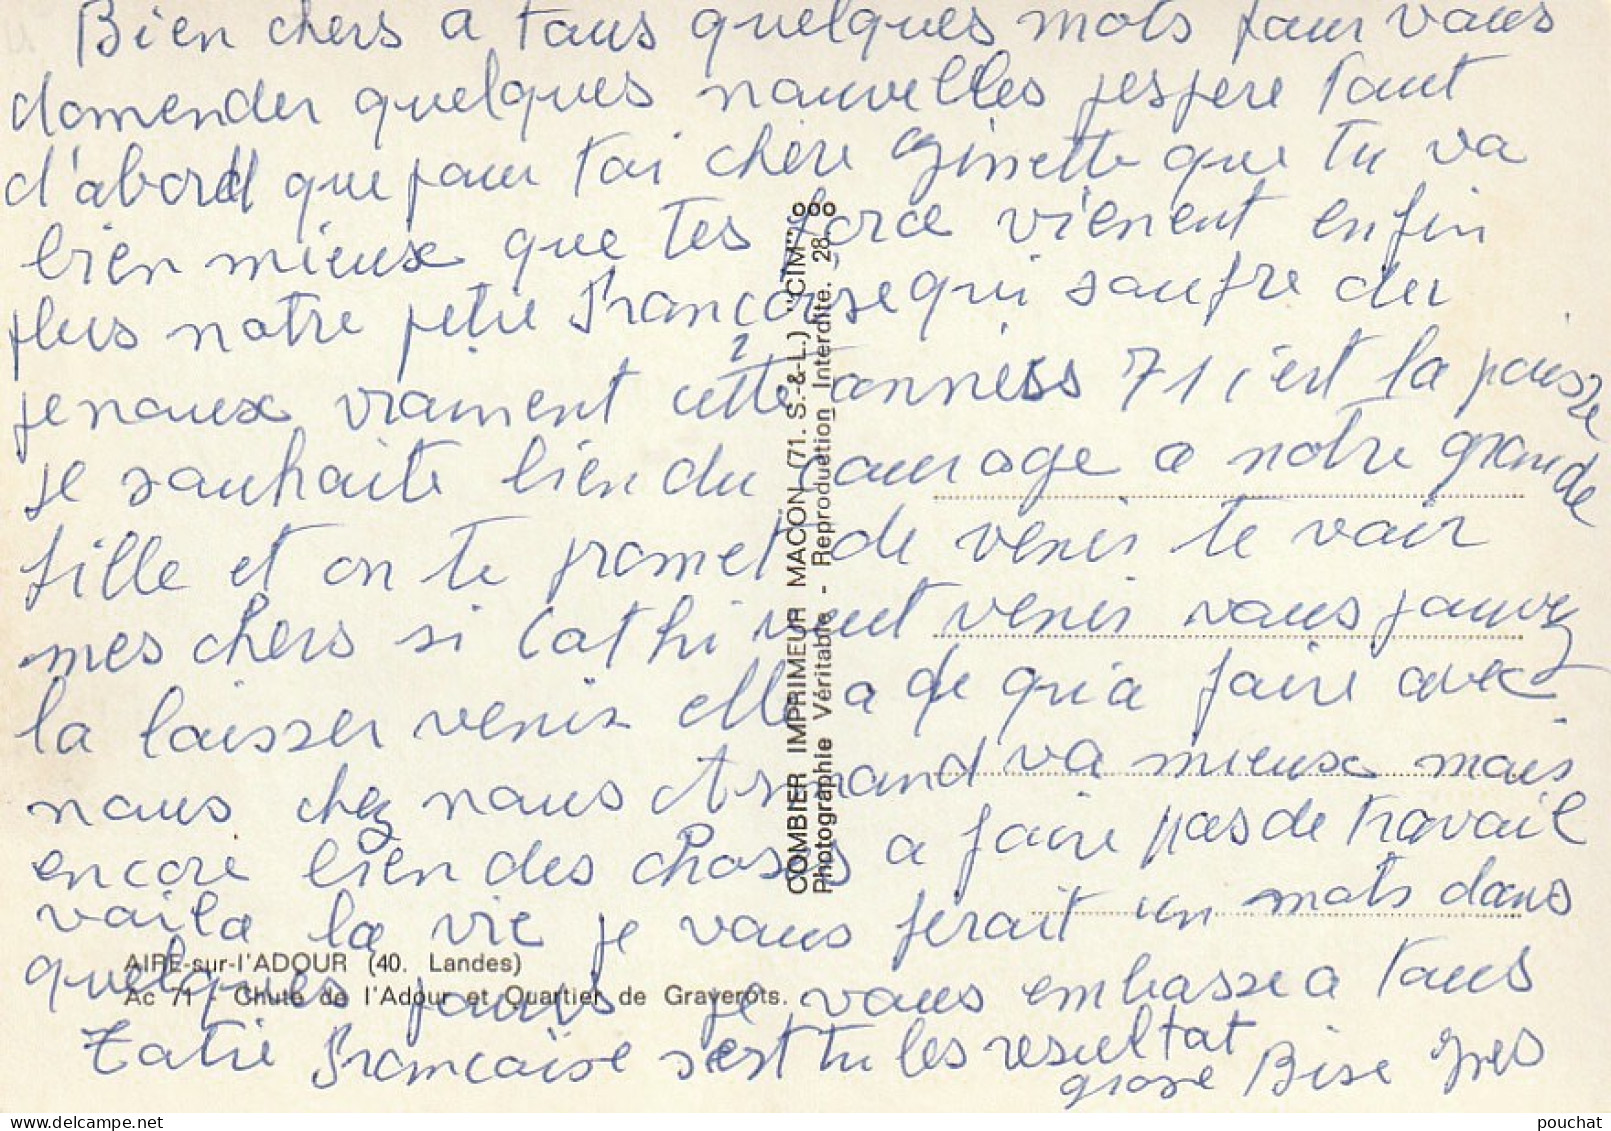 Bien chers a tous quelques mots pour vous
domender quelques nouvelles jespere tout
d'abord que pour toi chère Ginette que tu va
bien mieux que tes force vienent enfin
plus notre petie Françoise qui soufre du
jenoux vraiment cette anness 71 c'est la poisse
je souhaite bien du courage a notre grande
fille et on te promet de venir te voir
mes chers si Cathi veut venir vous pouvez
la laisser venir elle a de qui a faire avec
nous chez nous Armand va mieux mais
encore bien des choses a faire pas de travail
voila la vie je vous ferait un mots dans
quelques jours je vous embasse a tous
Tatie Françoise s'est tu les resultat
grose Bise Yves
COMBIER IMPRIMEUR MACON (71. S.-&-L.) "CIM"
Photographie Véritable - Reproduction Interdite. 28.
AIRE-sur-l'ADOUR (40. Landes)
Ac 71 - Chute de l'Adour et Quartier de Graverots.
pouchat